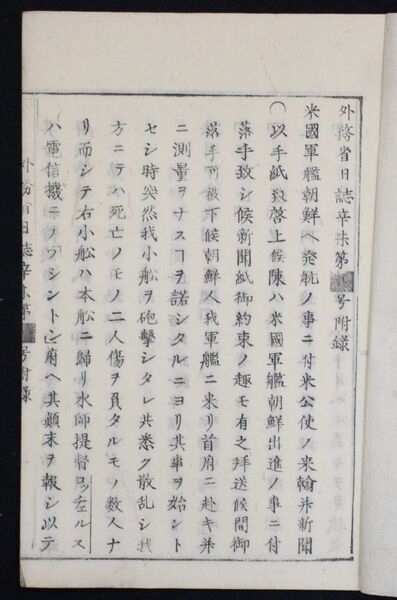 外務省日誌辛未第 号附録
米國軍艦朝鮮ヘ發航ノ事ニ付米公使ノ来翰并新聞
〇以手紙致啓上候陳ハ米國軍艦朝鮮出進ノ事ニ付
落手致シ候新聞紙御約束ノ趣モ有之拜送候間御
落手可被下候朝鮮人我軍艦ニ来リ首府ニ赴キ并
ニ測量ヲナスヿヲ諾シタルニヨリ其事ヲ始ント
セシ時突然我小船ヲ砲撃シタレ共悉ク散乱シ我
方ニテハ死亡ノモノ二人傷ヲ負タルモノ数人ナ
リ而シテ右小船ハ本船ニ歸リ水師提督ロッヂルス
ハ電信機ニテワシントン府ヘ其顛末ヲ報シ以テ
外務省日誌辛未第 号附録